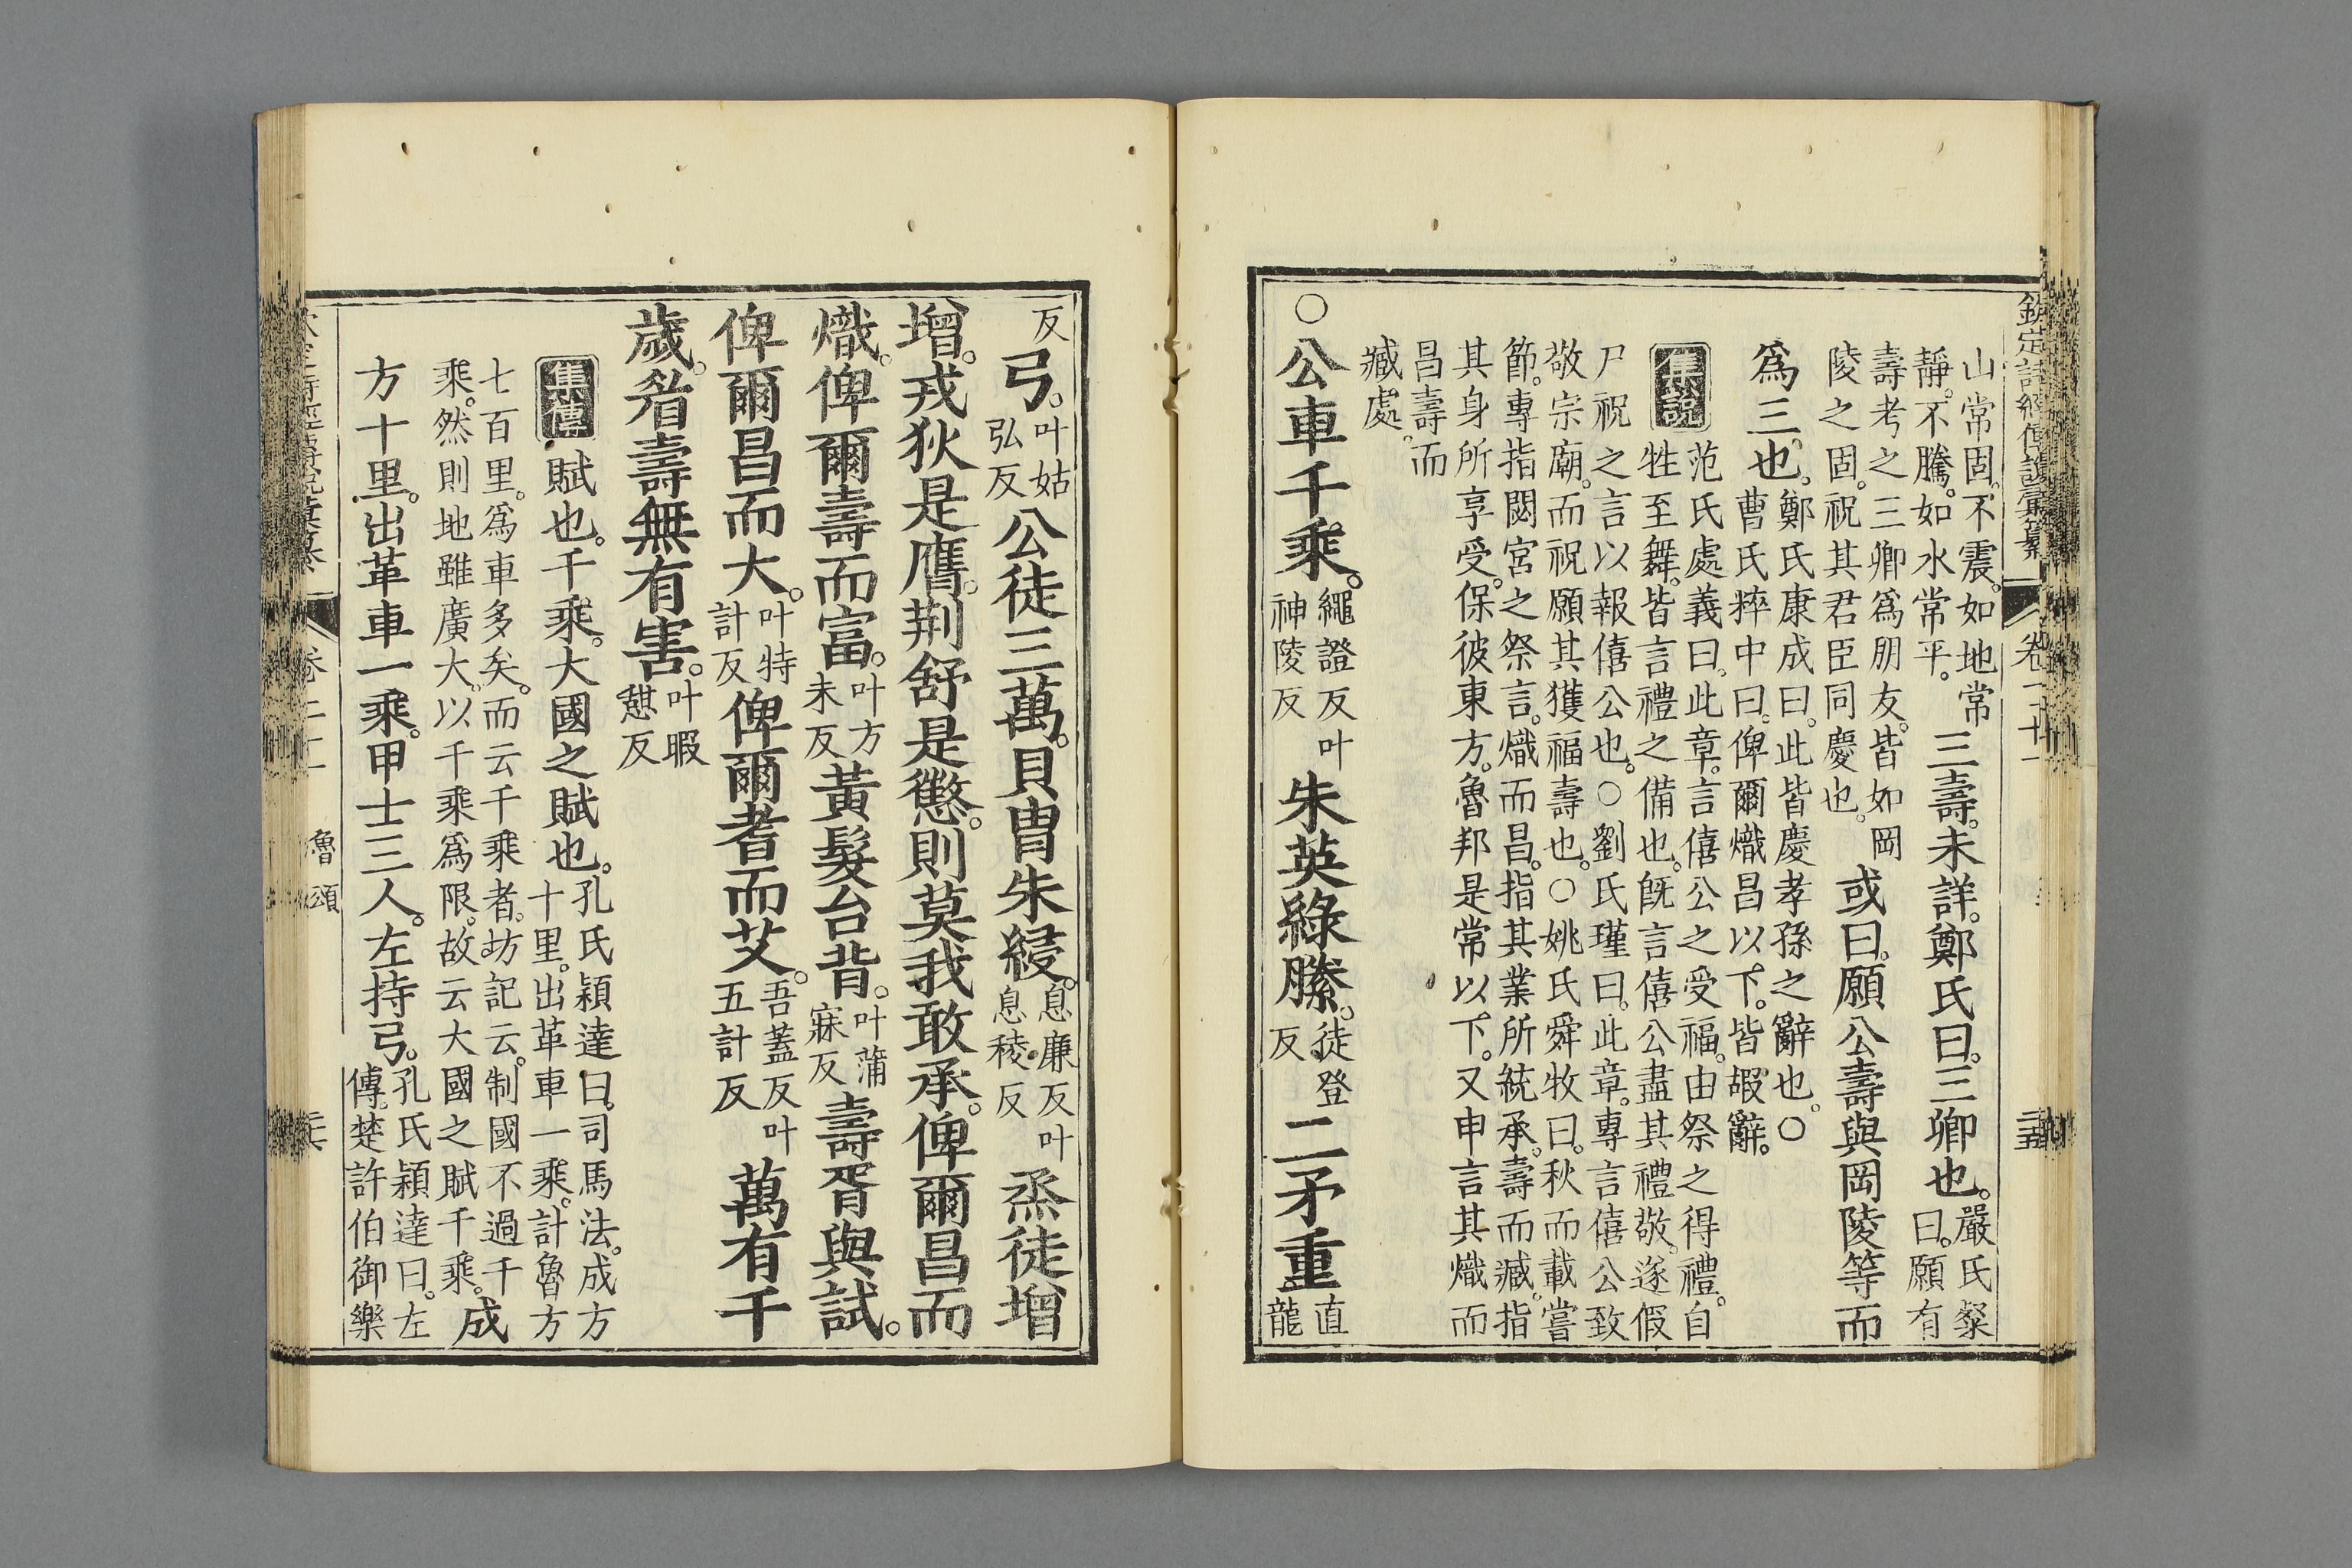 欽定詩經傳說彙纂 卷二十一 二五
山常固。不震。如地常
靜。不騰。如水常平。
三壽。未詳。鄭氏曰。三卿也。
嚴氏粲
曰。願有
壽考之三卿爲朋友。皆如岡
陵之固。祝其君臣同慶也。
或曰。願公壽與岡陵等而
爲三也。
鄭氏康成曰。此皆慶孝孫之辭也。○
曹氏粹中曰。俾爾熾昌以下。皆嘏辭。
集說
范氏處義曰。此章。言僖公之受福。由祭之得禮。自
牲至舞。皆言禮之備也。旣言僖公盡其禮敬。遂假
尸祝之言以報僖公也。○劉氏瑾曰。此章。專言僖公致
敬宗廟。而祝願其獲福壽也。○姚氏舜牧曰。秋而載嘗
節。專指閟宮之祭言。熾而昌。指其業所統承。壽而臧。指
其身所享受。保彼東方。魯邦是常以下。又申言其熾而
昌壽而
臧處。
○公車千乘。
繩證反叶
神陵反
朱英綠縢。
徒登
反
二矛重
直
龍
反
弓。
叶姑
弘反
公徒三萬。貝冑朱綅。
息廉反叶
息稜反
烝徒增
增。戎狄是膺。荆舒是懲。則莫我敢承。俾爾昌而
熾。俾爾壽而富。
叶方
未反
黃髮台背。
叶蒲
寐反
壽胥與試。
俾爾昌而大。
叶特
計反
俾爾耆而艾。
吾蓋反叶
五計反
萬有千
歲。眉壽無有害。
叶暇
憇反
集傳
賦也。千乘。大國之賦也。
孔氏穎達曰。司馬法。成方
十里。出革車一乘。計魯方
七百里。爲車多矣。而云千乘者。坊記云。制國不過千
乘。然則地雖廣大。以千乘爲限。故云大國之賦千乘。
成
方十里。出革車一乘。甲士三人。左持弓。
孔氏穎達曰。左
傳。楚許伯御樂
卷二十一 魯頌